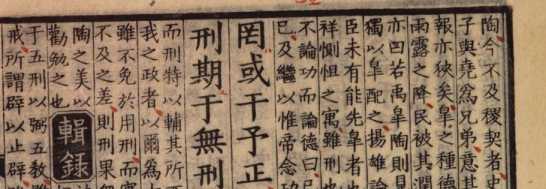 陶今不及稷契者史
子與堯為兄弟意其
報亦狹矣皐之種德
雨露之降民被其澤
亦曰若禹皐陶則見
獨以皐配之揚雄論
臣未有能先皐者
祥惻怛之寓雖刑
不論功而論德曰
已及繼以惟帝念功
罔或干予正
刑期于無刑
而刑特以輔其所
我之政者以爾為
雖不免於用刑而
不及之差則刑果
陶之美以
勸勉之也
輯錄
于五刑以弼五教
戒所謂辟以止辟